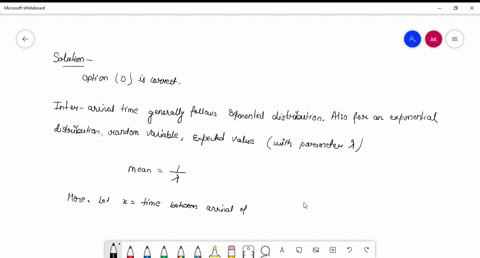 Microsoft Whiteboard
AK
Solution-
Option (D) is correct.
Inter-arrival time generally follows Exponential distribution. Also for an exponential
distribution, random variable, Expected value (with parameter λ)
mean = 1/λ
Here. Let x = time between arrival of